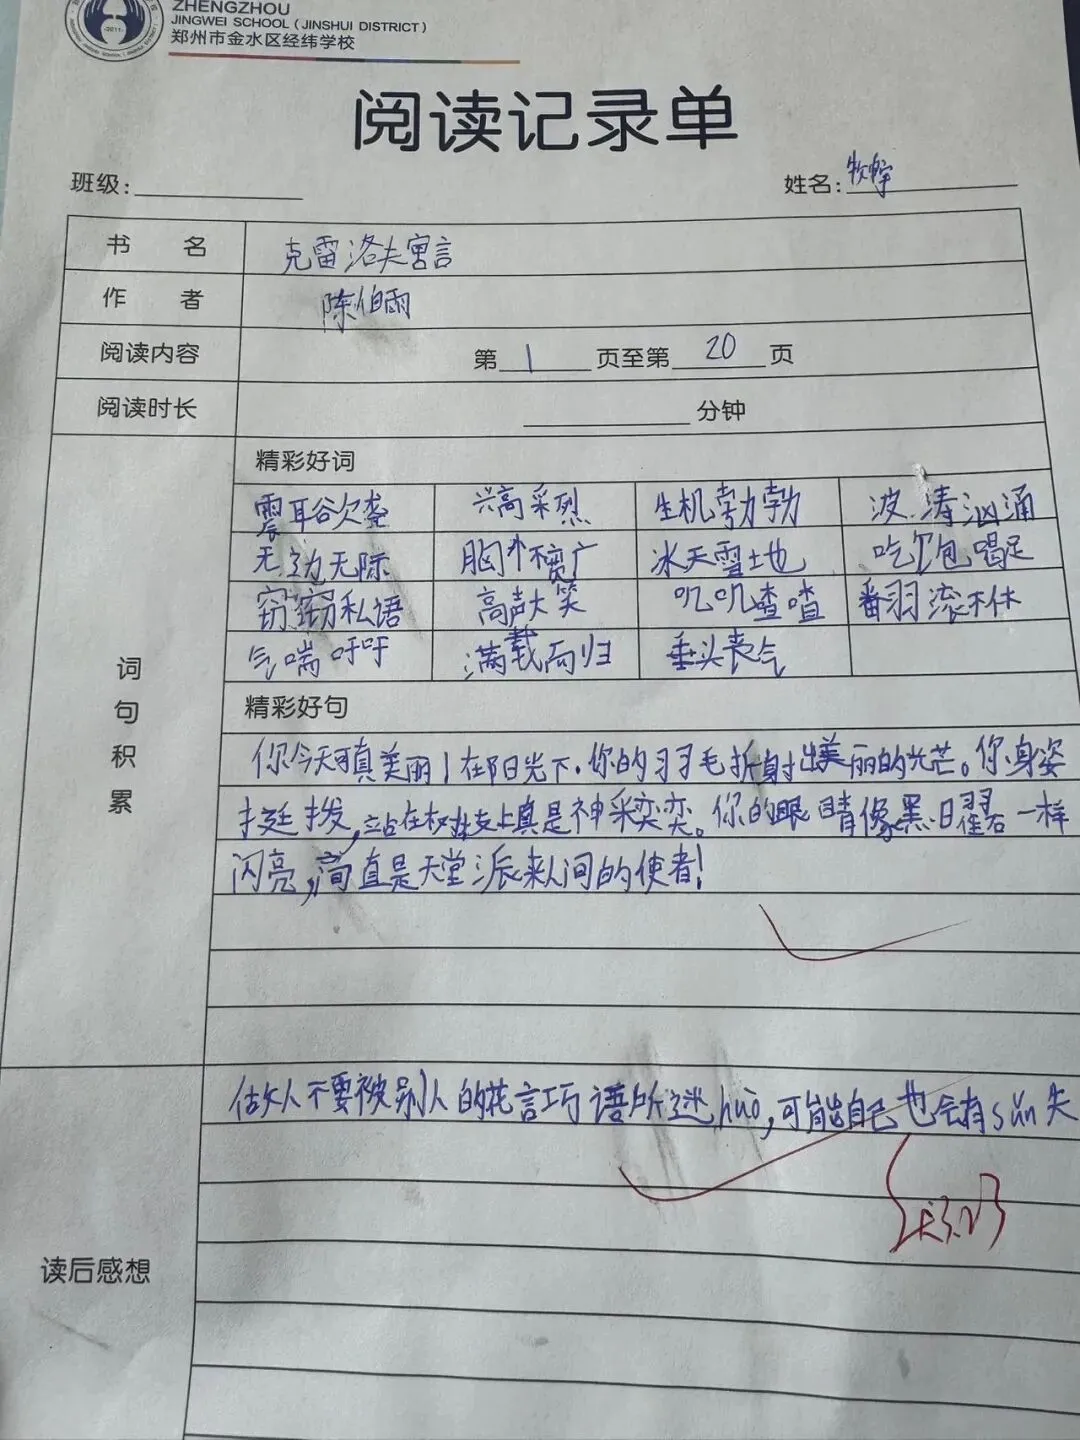 ZHENGZHOU
JINGWEI SCHOOL (JINSHUI DISTRICT)
郑州市金水区经纬学校
阅读记录单
班级: 姓名:
书 名 克雷洛夫寓言
作 者 陈伯雨
阅读内容 第 1 页至第 20 页
阅读时长 分钟
词句积累
精彩好词
震耳欲聋 兴高采烈 生机勃勃 波涛汹涌
无边无际 胸怀宽广 冰天雪地 吃饱喝足
窃窃私语 高声大笑 叽叽喳喳 翻滚不休
气喘吁吁 满载而归 垂头丧气
精彩好句
你今天可真美丽!在阳光下,你的羽毛折射出美丽的光芒。你身姿
挺拔,站在树枝上真是神采奕奕。你的眼睛像黑曜石一样
闪亮,简直是天堂派来人间的使者!
读后感想
做人不要被别人的花言巧语所迷huò,可能自己也会有sǔn失